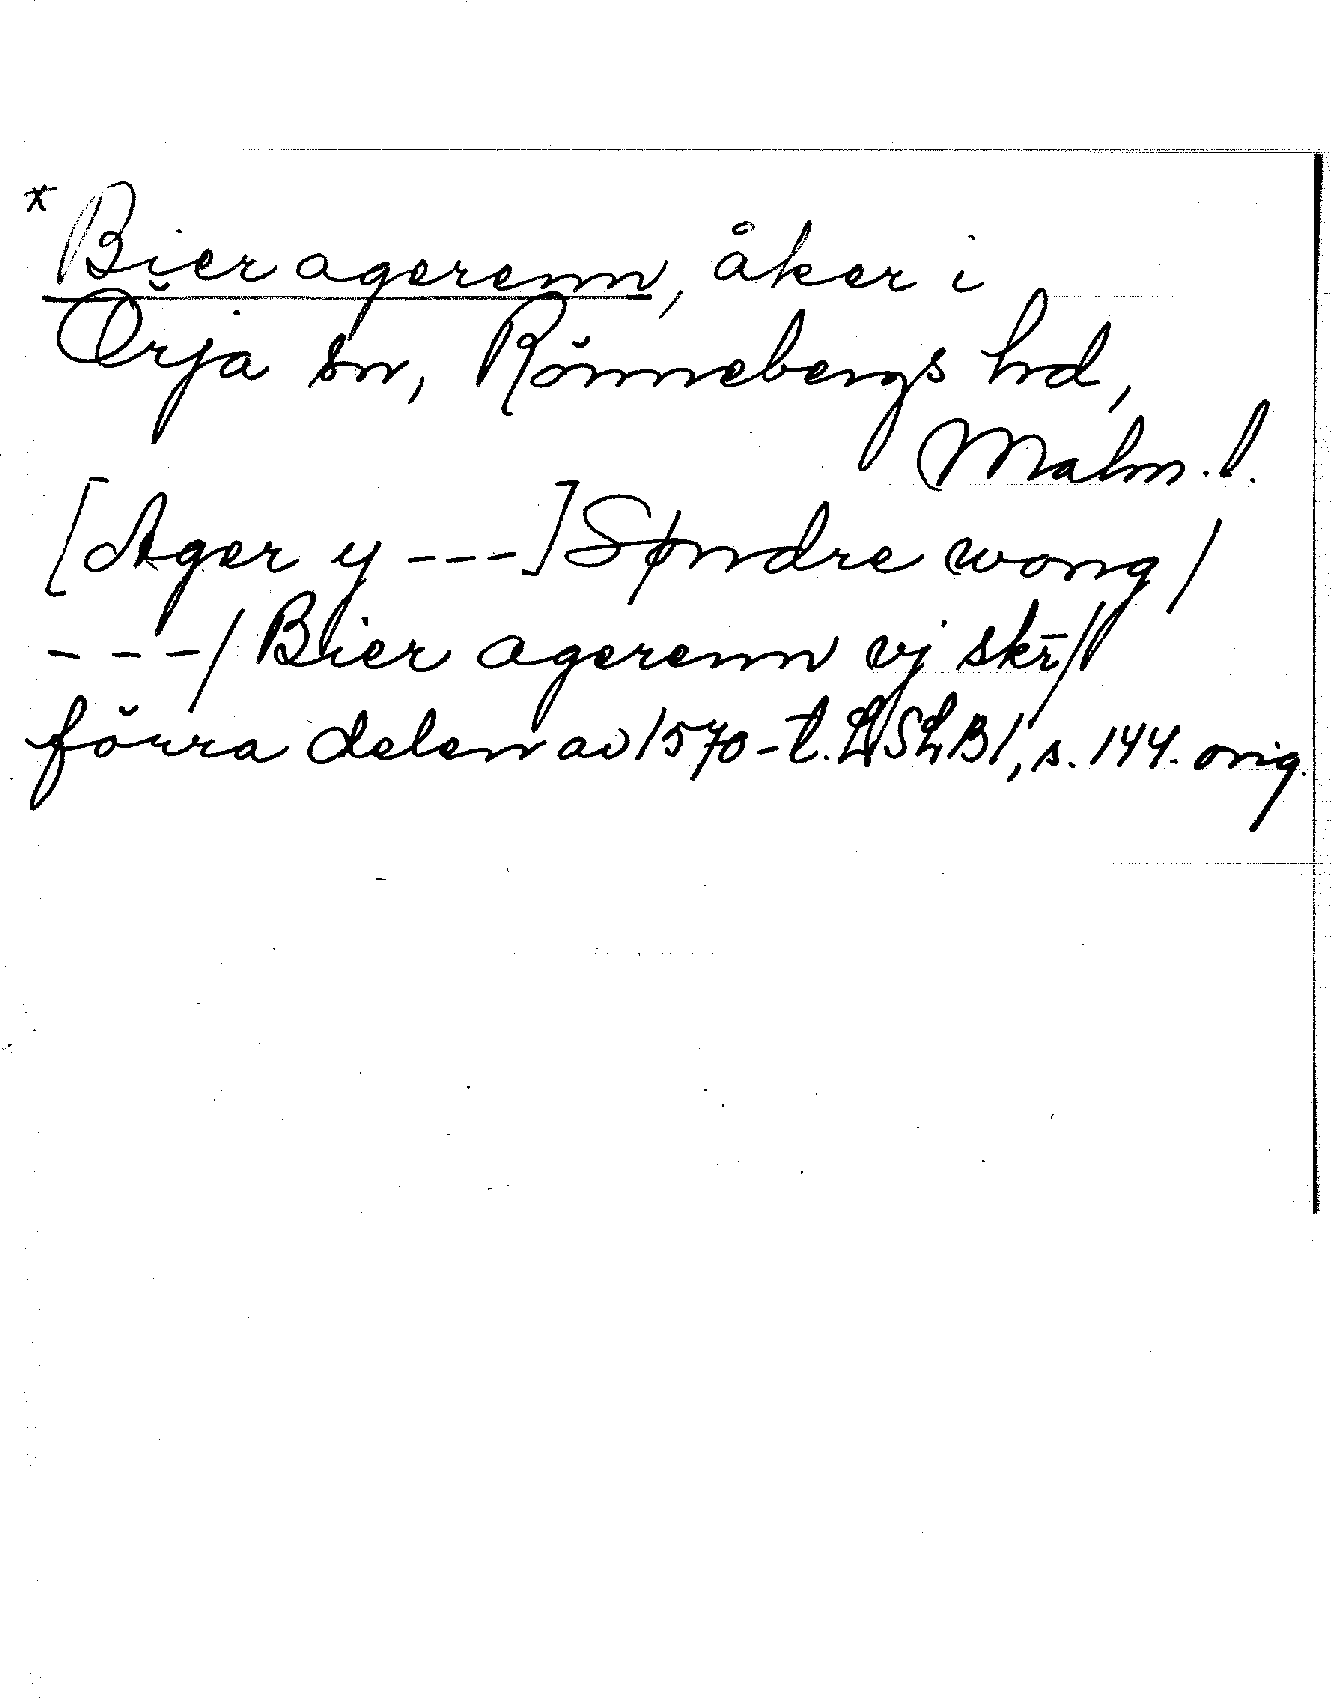 * Bier agerenn, åker i
Örja sn, Rönnebergs hd,
Malm. l.
[Ager y ---] Søndre wong /
---/ Bier agerenn vj skr̄ //
förra delen av 1570-t. LSLB 1, s. 144. orig.